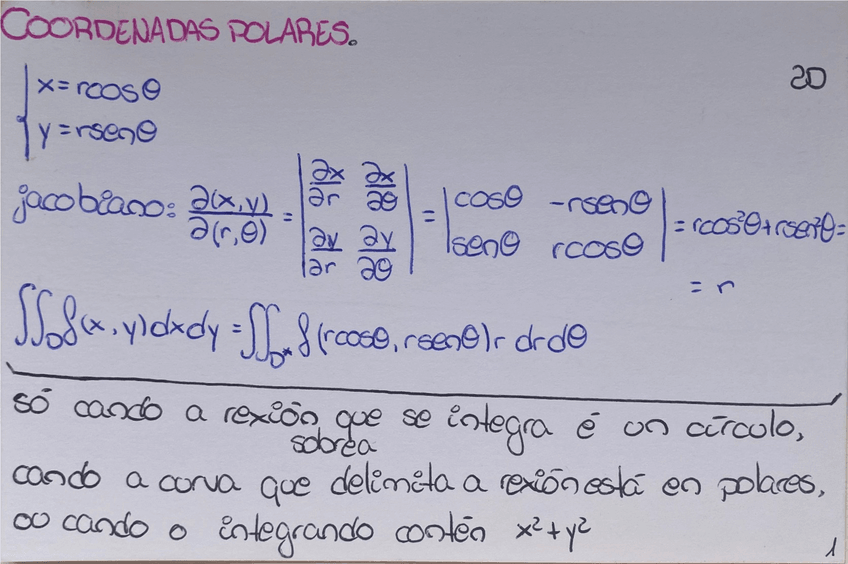 COORDENADAS POLARES.
20
x = rcosθ
y = rsenθ
jacobiano: ∂(x,y)/∂(r,θ) = |∂x/∂r ∂x/∂θ ∂y/∂r ∂y/∂θ| = |cosθ -rsenθ senθ rcosθ| = rcos²θ + rsen²θ =
= r
∬_D f(x,y)dxdy = ∬_D* f(rcosθ, rsenθ)r drdθ
só cando a rexión que se integra é un círculo,
sobrea
cando a curva que delimita a rexión está en polares,
ou cando o integrando contén x²+y²
1